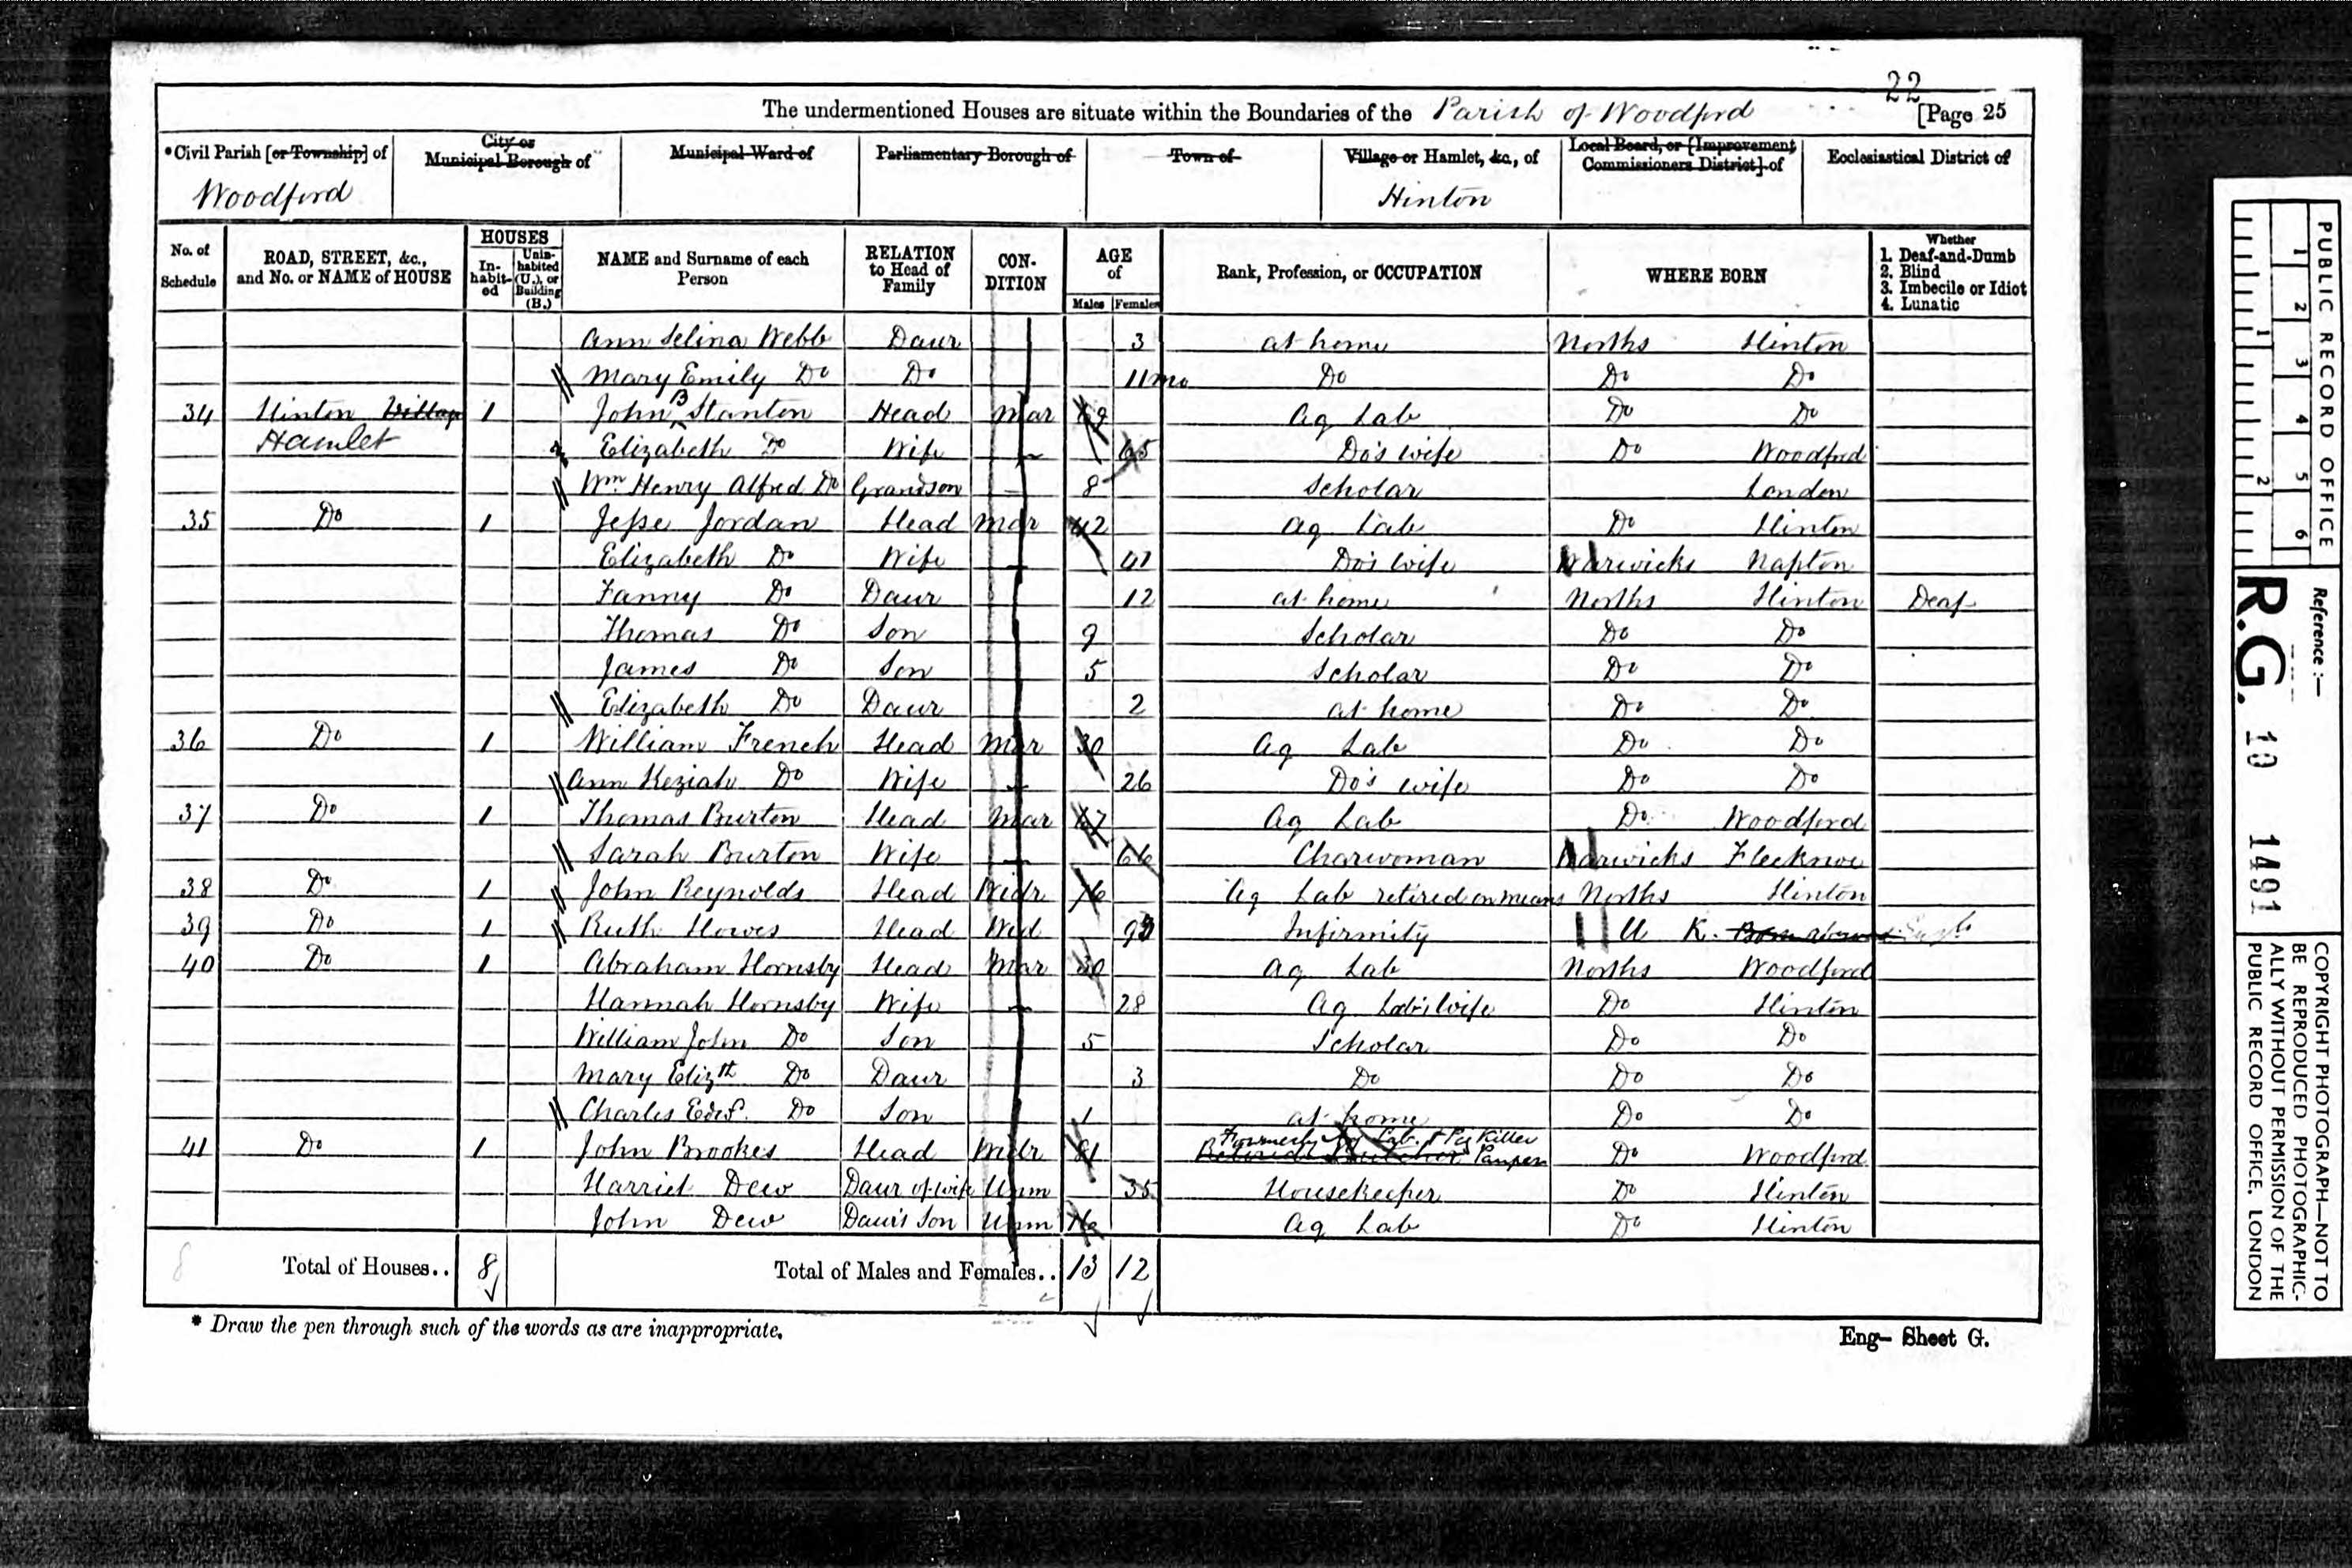 22
The undermentioned Houses are situate within the Boundaries of the Parish of Woodford [Page 25
*Civil Parish [or Township] of Woodford
City or Municipal Borough of
Municipal Ward of
Parliamentary Borough of
Town of
Village or Hamlet, &c., of Hinton
Local Board, or [Improvement Commissioners District] of
Ecclesiastical District of
No. of Schedule
ROAD, STREET, &c., and No. or NAME of HOUSE
HOUSES
In-habit-ed
Unin-habited (U.), or Building (B.)
NAME and Surname of each Person
RELATION to Head of Family
CON-DITION
AGE of
Males Females
Rank, Profession, or OCCUPATION
WHERE BORN
Whether
1. Deaf-and-Dumb
2. Blind
3. Imbecile or Idiot
4. Lunatic
Ann Selina Webb Daur 3 at home Norths Hinton
Mary Emily Do Do 11mo Do Do Do
34 Hinton Village 1 John B Stanton Head Mar 69 Ag Lab Do Do
Hamlet Elizabeth Do Wife 65 Do's wife Do Woodford
Wm Henry Alfred Do Grandson 8 Scholar London
35 Do 1 Jesse Jordan Head Mar 42 Ag Lab Do Hinton
Elizabeth Do Wife 41 Do's wife Warwicks Napton
Fanny Do Daur 12 at home Norths Hinton Deaf
Thomas Do Son 9 Scholar Do Do
James Do Son 5 Scholar Do Do
Elizabeth Do Daur 2 at home Do Do
36 Do 1 William French Head Mar 30 Ag Lab Do Do
Ann Keziah Do Wife 26 Do's wife Do Do
37 Do 1 Thomas Burton Head Mar 67 Ag Lab Do Woodford
Sarah Burton Wife 66 Charwoman Warwicks Flecknoe
38 Do 1 John Reynolds Head Widr 76 Ag Lab retired on means Norths Hinton
39 Do 1 Ruth Howes Head Wid Infirmity U K.
40 Do 1 Abraham Hornsby Head Mar 30 Ag Lab Norths Woodford
Hannah Hornsby Wife 28 Ag Lab's wife Do Hinton
William John Do Son 5 Scholar Do Do
Mary Elizth Do Daur 3 Do Do Do
Charles Edwd. Do Son 1 at home Do Do
41 Do 1 John Brookes Head Widr 81 Formerly Ag Lab. & Pig Killer Do Woodford
Retired Butcher Pauper
Harriet Dew Daur of wife Unm 35 Housekeeper Do Hinton
John Dew Daur's Son Unm 16 Ag Lab Do Hinton
8 Total of Houses.. 8 Total of Males and Females.. 13 12
* Draw the pen through such of the words as are inappropriate.
Eng- Sheet G.
PUBLIC RECORD OFFICE
1 2 3 4 5 6
1 2
Reference :-
R.G. 10 1491
COPYRIGHT PHOTOGRAPH—NOT TO
BE REPRODUCED PHOTOGRAPHIC-
ALLY WITHOUT PERMISSION OF THE
PUBLIC RECORD OFFICE, LONDON